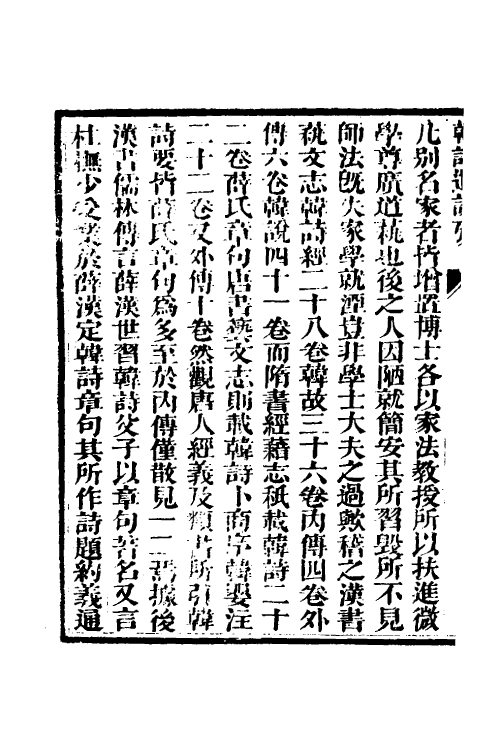 韓詩遺說序
凡別名家者皆增置博士各以家法教授所以扶進微
學尊廣道蓺也後之人因陋就簡安其所習毀所不見
師法旣失家學就湮豈非學士大夫之過歟稽之漢書
蓺文志韓詩經二十八卷韓故三十六卷內傳四卷外
傳六卷韓說四十一卷而隋書經藉志秖載韓詩二十
二卷薛氏章句唐書藝文志則載韓詩卜商序韓嬰注
二十二卷又外傳十卷然觀唐人經義及類書所引韓
詩要皆薛氏章句爲多至於內傳僅散見一二焉據後
漢書儒林傳言薛漢世習韓詩父子以章句著名又言
杜撫少受業於薛漢定韓詩章句其所作詩題約義通